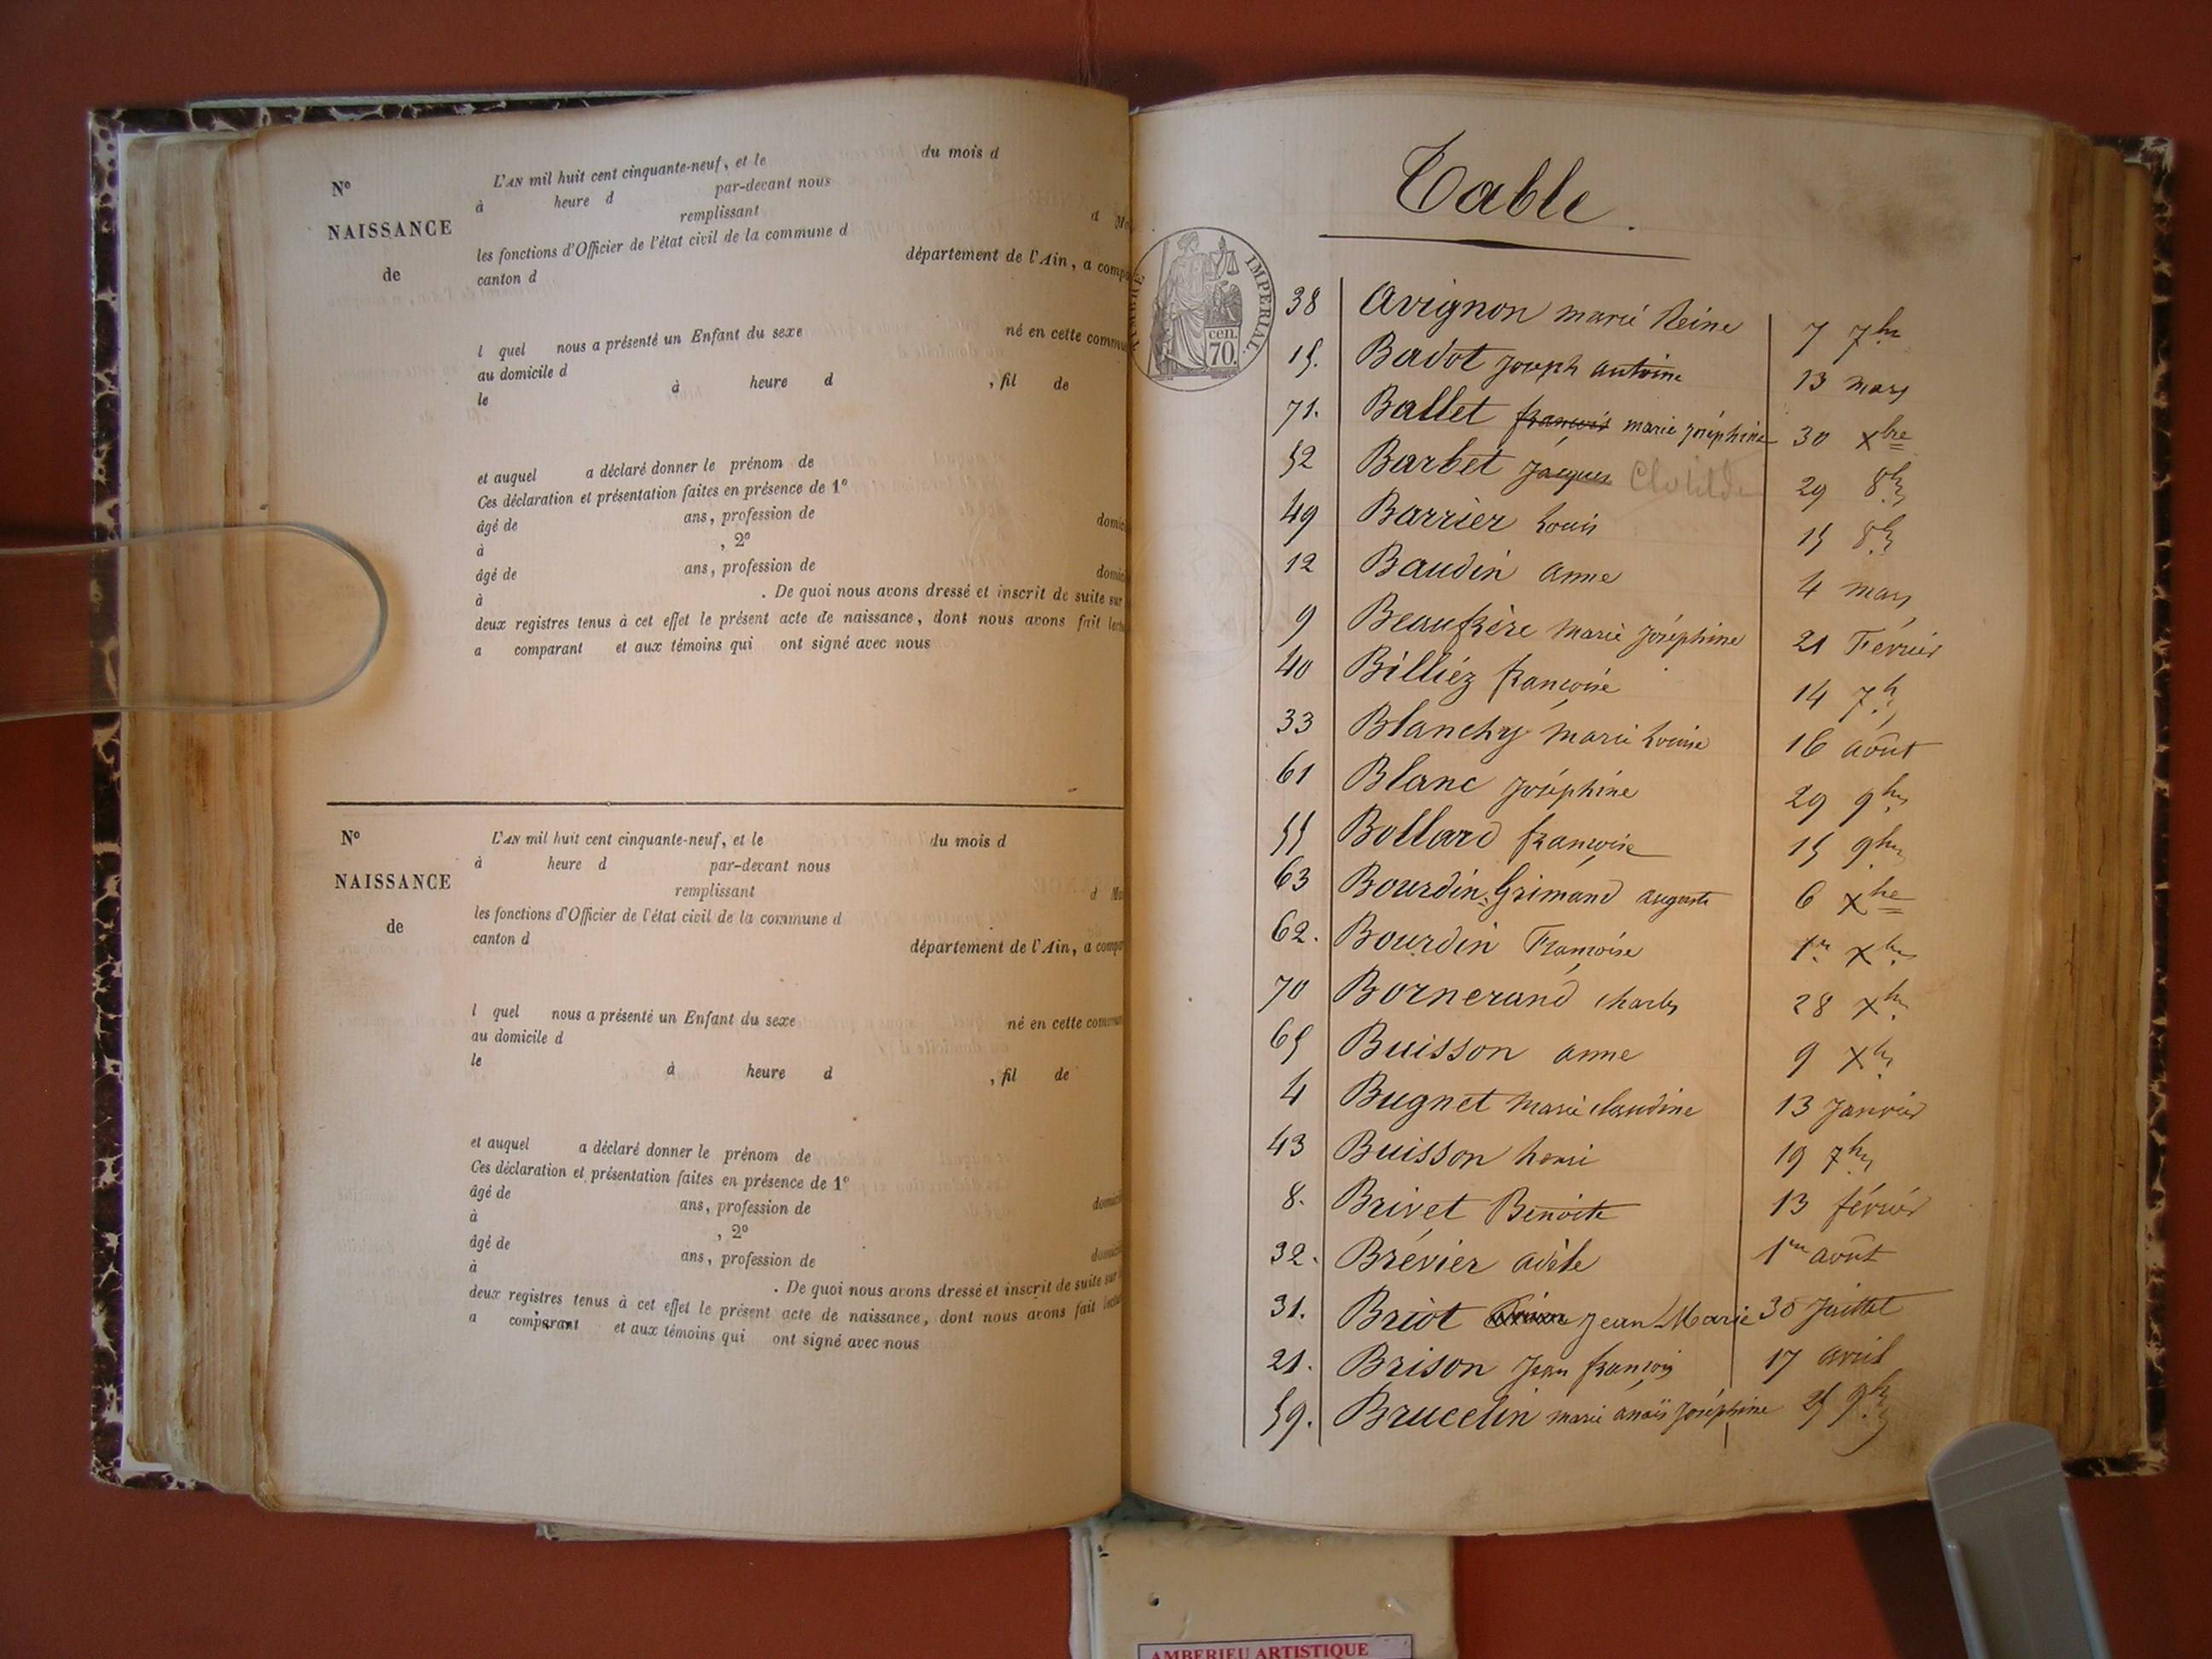 N° L'AN mil huit cent cinquante-neuf, et le du mois d
à heure d par-devant nous
remplissant d
NAISSANCE les fonctions d'Officier de l'état civil de la commune d
de canton d département de l'Ain, a comp
l quel nous a présenté un Enfant du sexe né en cette commu
au domicile d
le à heure d , fil de
et auquel a déclaré donner le prénom de
Ces déclaration et présentation faites en présence de 1°
âgé de ans, profession de domic
à , 2°
âgé de ans, profession de domic
à . De quoi nous avons dressé et inscrit de suite sur
deux registres tenus à cet effet le présent acte de naissance, dont nous avons fait lectu
a comparant et aux témoins qui ont signé avec nous
N° L'AN mil huit cent cinquante-neuf, et le du mois d
à heure d par-devant nous
NAISSANCE remplissant d
les fonctions d'Officier de l'état civil de la commune d
de canton d département de l'Ain, a compa
l quel nous a présenté un Enfant du sexe né en cette commun
au domicile d
le à heure d , fil de
et auquel a déclaré donner le prénom de
Ces déclaration et présentation faites en présence de 1°
âgé de ans, profession de domici
à , 2°
âgé de ans, profession de domici
à . De quoi nous avons dressé et inscrit de suite sur
deux registres tenus à cet effet le présent acte de naissance, dont nous avons fait lectu
a comparant et aux témoins qui ont signé avec nous
Table.
TIMBRE IMPERIAL.
cen.
70.
38 Avignon marie Reine 7 7bre
15. Badot joseph antoine 13 mars
71. Ballet françois marie joséphine 30 Xbre
52 Barbet jacques Clotilde 29 8bre
49 Barrier Louis 15 8bre
12 Baudin anne 4 mars
9 Beaufrère marie joséphine 21 Février
40 Billiéz françoise 14 7bre
33 Blanchy marie Louise 16 août
61 Blanc joséphine 29 9bre
55 Bollard françoise 15 9bre
63 Bourdin-Grimand auguste 6 Xbre
62. Bourdin Françoise 1er Xbre
70 Bornerand charles 28 Xbre
65 Buisson anne 9 Xbre
4 Bugnet marie claudine 13 janvier
43 Buisson henri 19 7bre
8. Brivet Benoite 13 février
32. Brévier adèle 1er août
31. Briot Jean Marie 30 juillet
21. Brison jean françois 17 avril
59. Brucelin marie anaïs joséphine 25 9bre
AMBERIEU ARTISTIQUE